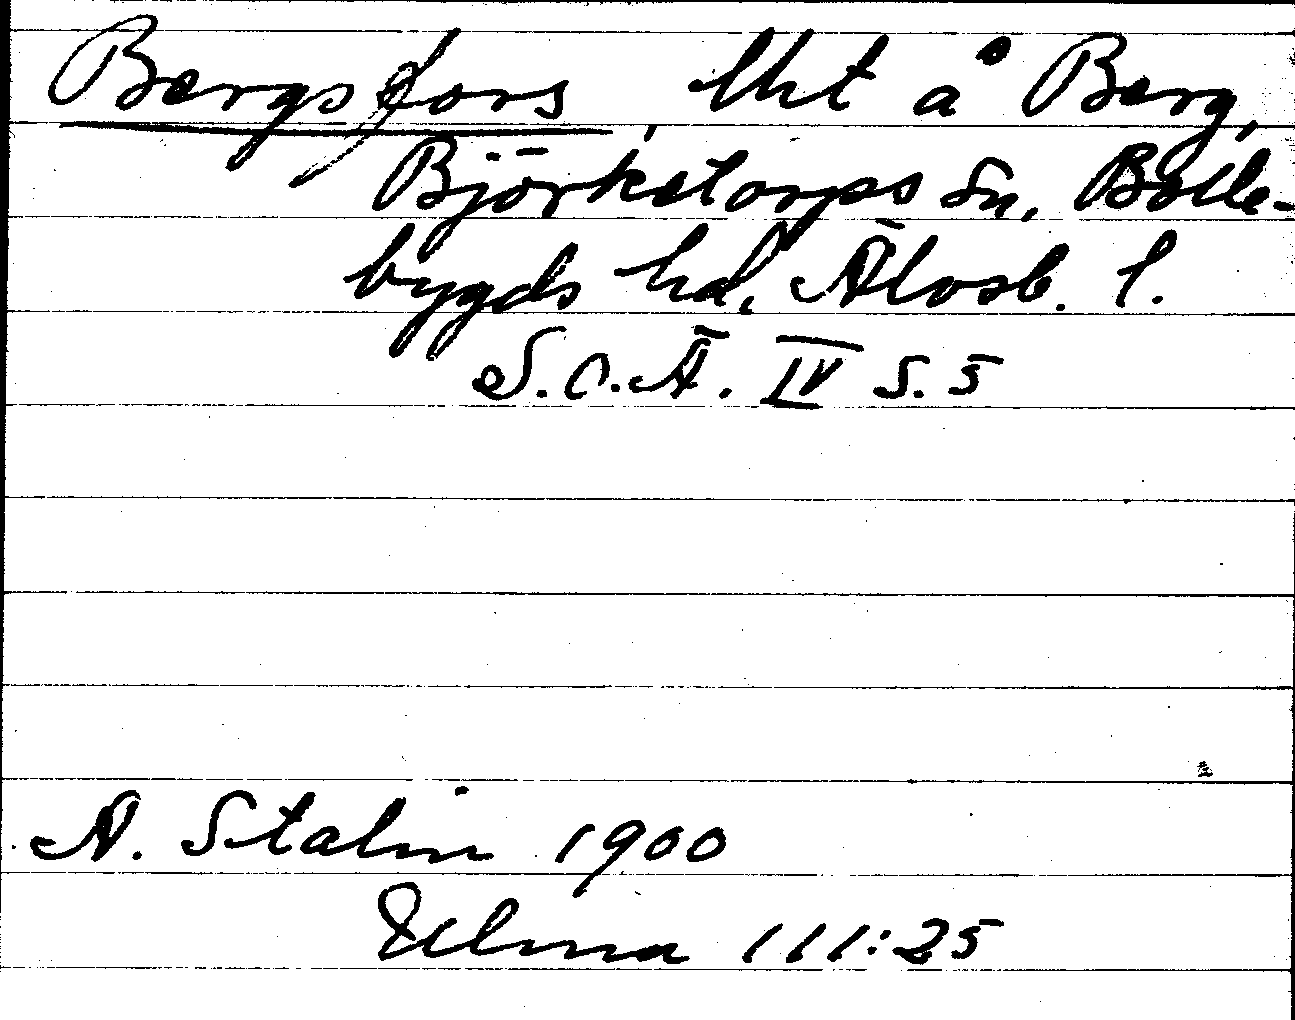 Bergsfors, lht å Berg,
Björketorps sn, Bolle-
bygds hd, Älvsb. l.
S.O.Ä. IV S. 5
A. Stalin 1900
Ulma 111:25